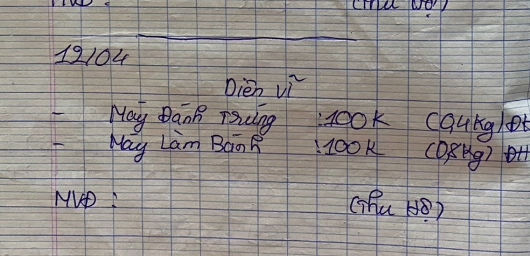 MVĐ : (Thu Hộ)
12/04
Diễn Vĩ
- Máy Đánh Trứng : 100K (0,4kg) ĐH
- Máy Làm Bánh : 100K (0,8kg) ĐH
MVĐ : (Thu Hộ)